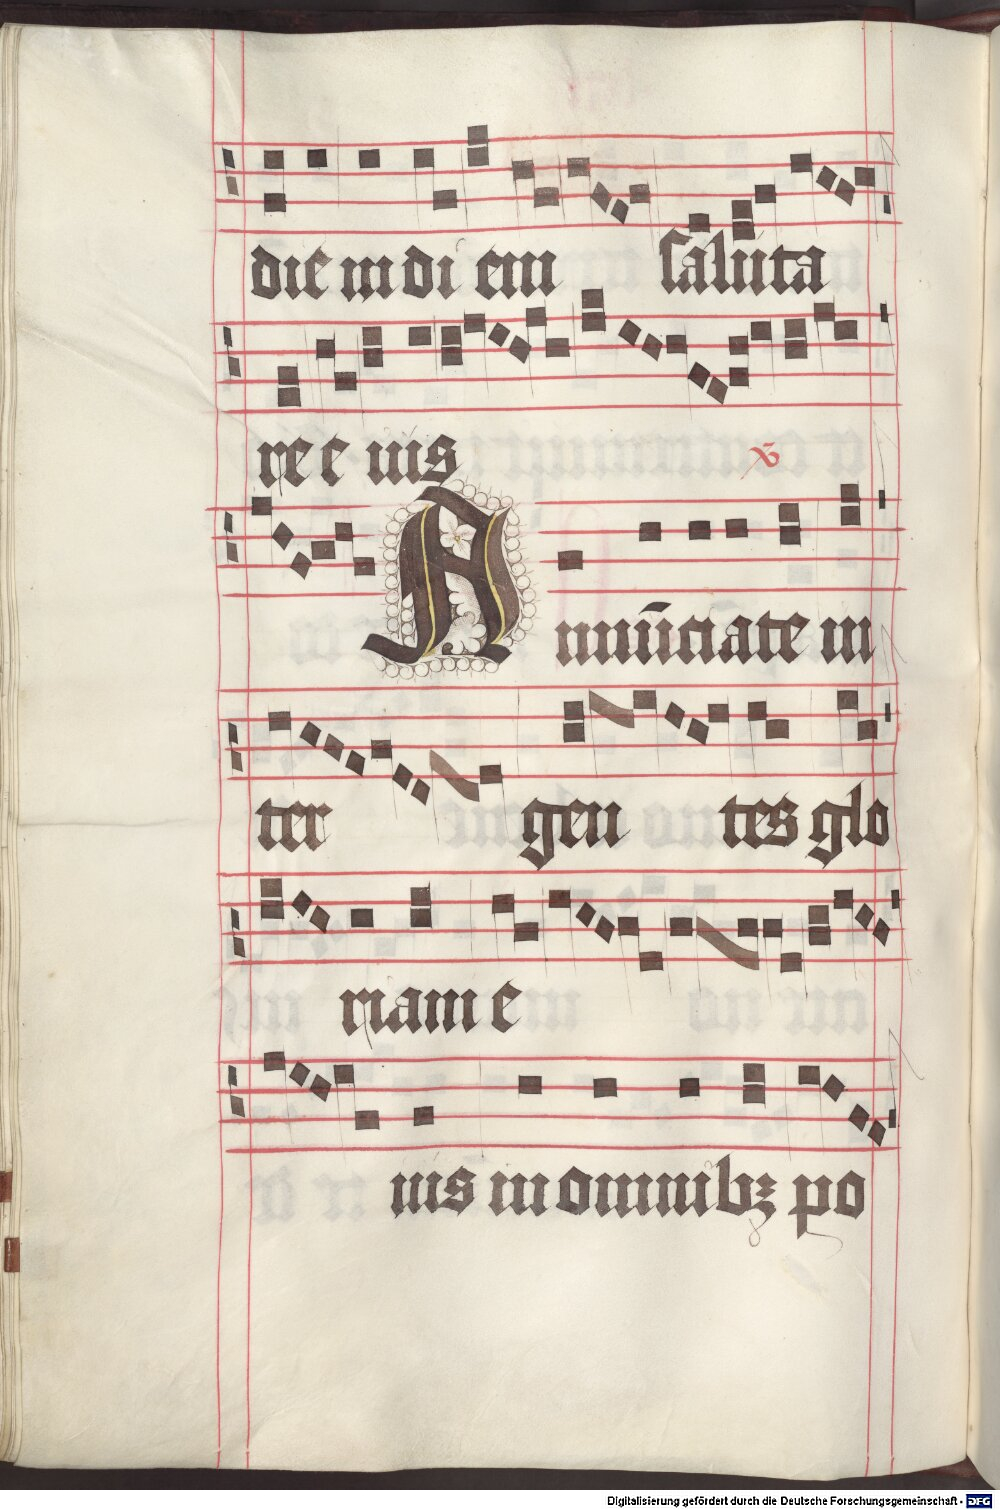 die in di em saluta
re e ius
℣
Annūciate in
ter gen tes glo
riam e
ius in omnibꝫ po
Digitalisierung gefördert durch die Deutsche Forschungsgemeinschaft - DFG